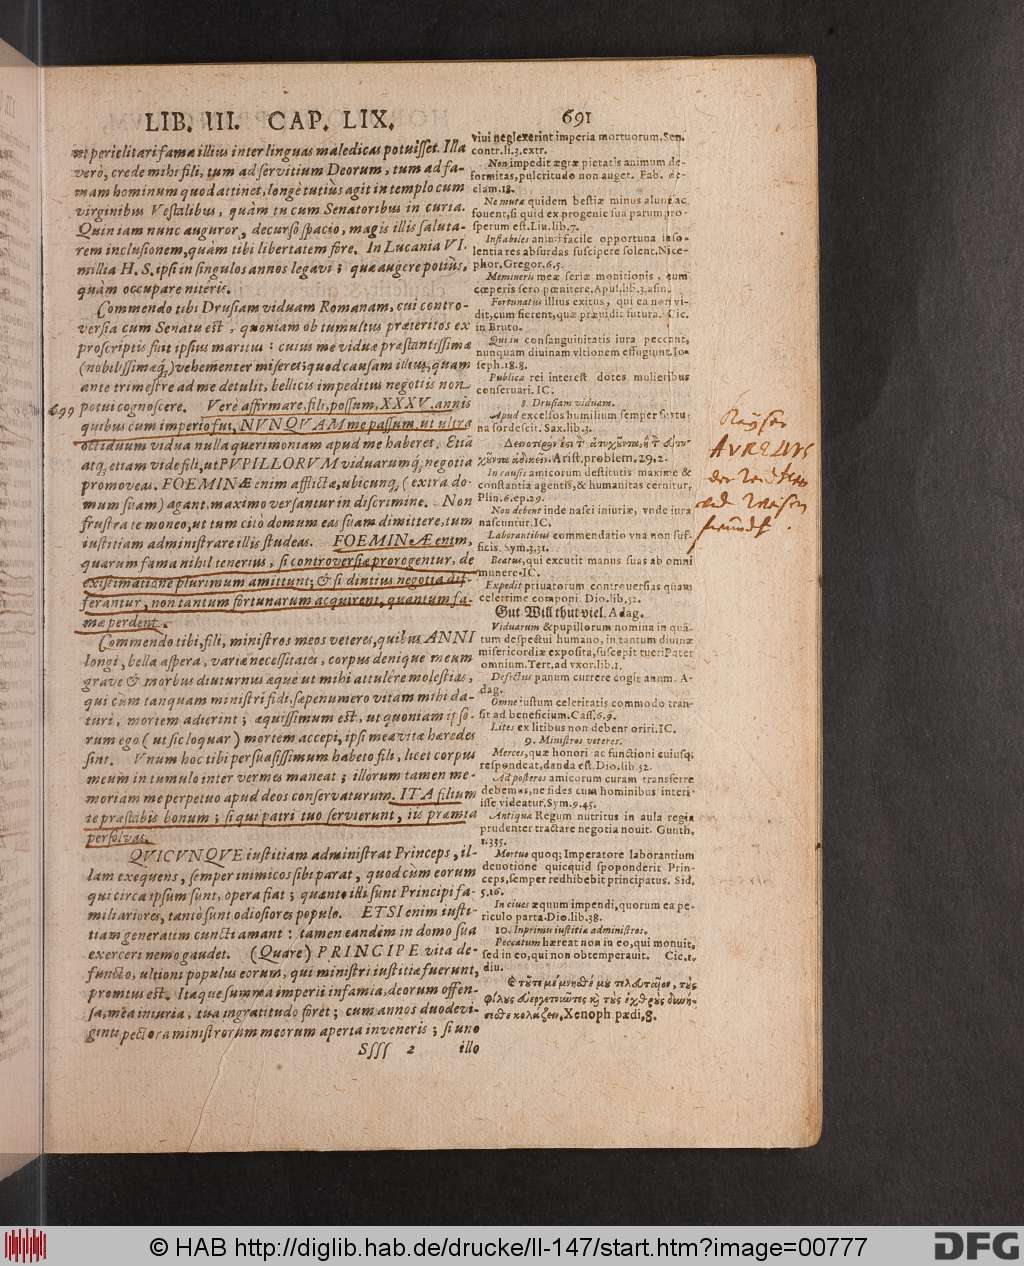 LIB. III. CAP. LIX. 691
et periclitari fama illius inter linguas maledicas potuisset. Illa
verò, crede mihi fili, tum ad servitium Deorum, tum ad fa-
mam hominum quod attinet, longè tutiùs agit in templo cum
virginibus Vestalibus, quàm tu cum Senatoribus in curia.
Quin iam nunc auguror, decurso spacio, magis illis saluta-
rem inclusionem, quàm tibi libertatem fore. In Lucania VI.
millia H. S. ipsi in singulos annos legavi; quæ augere potiùs,
quàm occupare niteris.
Commendo tibi Drusiam viduam Romanam, cui contro-
versia cum Senatu est, quoniam ob tumultus præteritos ex
proscriptis fuit ipsius maritus: cuius me viduæ præstantissimæ
(nobilissimæq́;) vehementer miseret; quod causam illius, quam
ante trimestre ad me detulit, bellicis impeditus negotiis non
699 potui cognoscere. Verè affirmare, fili, possum, XXXV. annis
quibus cum imperio fui, NVNQVAM me passum, ut ultra
octiduum vidua nulla querimoniam apud me haberet. Etiā
atq́; etiam vide fili, ut PVPILLORVM viduarumq́; negotia
promoveas. FOEMINÆ enim afflictæ, ubicunq́; (extra do-
mum suam) agant, maximo versantur in discrimine. Non
frustra te moneo, ut tum citò domum eas suam dimittere, tum
iustitiam administrare illis studeas. FOEMINÆ enim,
quarum fama nihil tenerius, si controversiæ prorogentur, de
existimatione plurimum amittunt; & si diutius negotia dif-
ferantur, non tantum fortunarum acquirent, quantum fa-
mæ perdent.
Commendo tibi, fili, ministros meos veteres, quibus ANNI
longi, bella aspera, variæ necessitates, corpus denique meum
grave & morbus diuturnus æque ut mihi attulere molestias,
qui cùm tanquam ministri fidi, sæpenumero vitam mihi da-
turi, mortem adierint; æquissimum est, ut quoniam ipso-
rum ego (ut sic loquar) mortem accepi, ipsi meæ vitæ hæredes
sint. Vnum hoc tibi persuasissimum habeto fili, licet corpus
meum in tumulo inter vermes maneat; illorum tamen me-
moriam me perpetuo apud deos conservaturum. ITA filium
te præstabis bonum; si qui patri tuo servierunt, iis præmia
persolvas.
QVICVNQVE iustitiam administrat Princeps, il-
lam exequens, semper inimicos sibi parat, quod cum eorum
qui circa ipsum sunt, opera fiat; quanto illi sunt Principi fa-
miliariores, tantò sunt odiosiores populo. ETSI enim iusti-
tiam generatim cuncti amant: tamen eandem in domo sua
exerceri nemo gaudet. (Quare) PRINCIPE vita de-
functo, ultioni populus eorum, qui ministri iustitiæ fuerunt,
promtus est. Itaque summa imperii infamia, deorum offen-
sa, mea iniuria, tua ingratitudo foret; cum annos duodevi-
ginti pectora ministrorum meorum aperta inveneris; si uno
Sſſſ 2 illo
vivi neglexerint imperia mortuorum. Sen.
contr. li.3. extr.
Non impedit ægræ pietatis animum de-
formitas, pulcritudo non auget. Fab. de-
clam.18.
Ne mutæ quidem bestiæ minus alunt ac
fouent, si quid ex progenie sua parum pro-
sperum est. Liu. lib.7.
Instabiles animi facile opportuna inso-
lentia res absurdas suscipere solent. Nice-
phor. Gregor.6.5.
Memineris meæ seriæ monitionis, cum
cœperis sero pœnitere. Apul. lib.3. asin.
Fortunatus illius exitus, qui ea non vi-
dit, cum fierent, quæ prævidit futura. Cic.
in Bruto.
Qui in consanguinitatis iura peccant,
nunquam diuinam vltionem effugiunt. Io-
seph.18.8.
Publicæ rei interest dotes mulieribus
conseruari. IC.
8. Drusiam viduam.
Apud excelsos humilium semper fortu-
na sordescit. Sax. lib.3.
Arist. problem. 29.2.
In causis amicorum destitutis maxime &
constantia agentis, & humanitas cernitur,
Plin.6. ep.29.
Non debent inde nasci iniuriæ, vnde iura
nascuntur. IC.
Laborantibus commendatio vna non suf-
ficis. Sym.3.31.
Beatus, qui excutit manus suas ab omni
munere. IC.
Expedit priuatorum controuersias quàm
celerrime componi. Dio. lib.52.
Gut Will thut viel. Adag.
Viduarum & pupillorum nomina in quā-
tum despectui humano, in tantum diuinæ
misericordiæ exposita, suscepit tueri Pater
omnium. Tert. ad vxor. lib.1.
Defectus panum currere cogit anum. A-
dag.
Omne iustum celeritatis commodo tran-
sit ad beneficium. Cass.6.9.
Lites ex litibus non debent oriri. IC.
9. Ministros veteres.
Merces, quæ honori ac functioni euiusq;
respondeat, danda est. Dio. lib.52.
Ad posteros amicorum curam transferre
debemus, ne fides cum hominibus interi-
isse videatur. Sym.9.45.
Antiqua Regum nutritus in aula regia
prudenter tractare negotia nouit. Gunth.
1.335.
Mortuo quoq; Imperatore laborantium
deuotione quicquid spoponderit Prin-
ceps, semper redhibebit principatus. Sid.
5.16.
In ciues æquum impendi, quorum ea pe-
riculo parta. Dio. lib.38.
10. Inprimis iustitiæ administros.
Peccatum hæreat non in eo, qui monuit,
sed in eo, qui non obtemperauit. Cic. 1.
diu.
Xenoph pædi, 8.
Kayser
AVRELIVS
der
vnd Waisen
freundt.
© HAB http://diglib.hab.de/drucke/ll-147/start.htm?image=00777
DFG